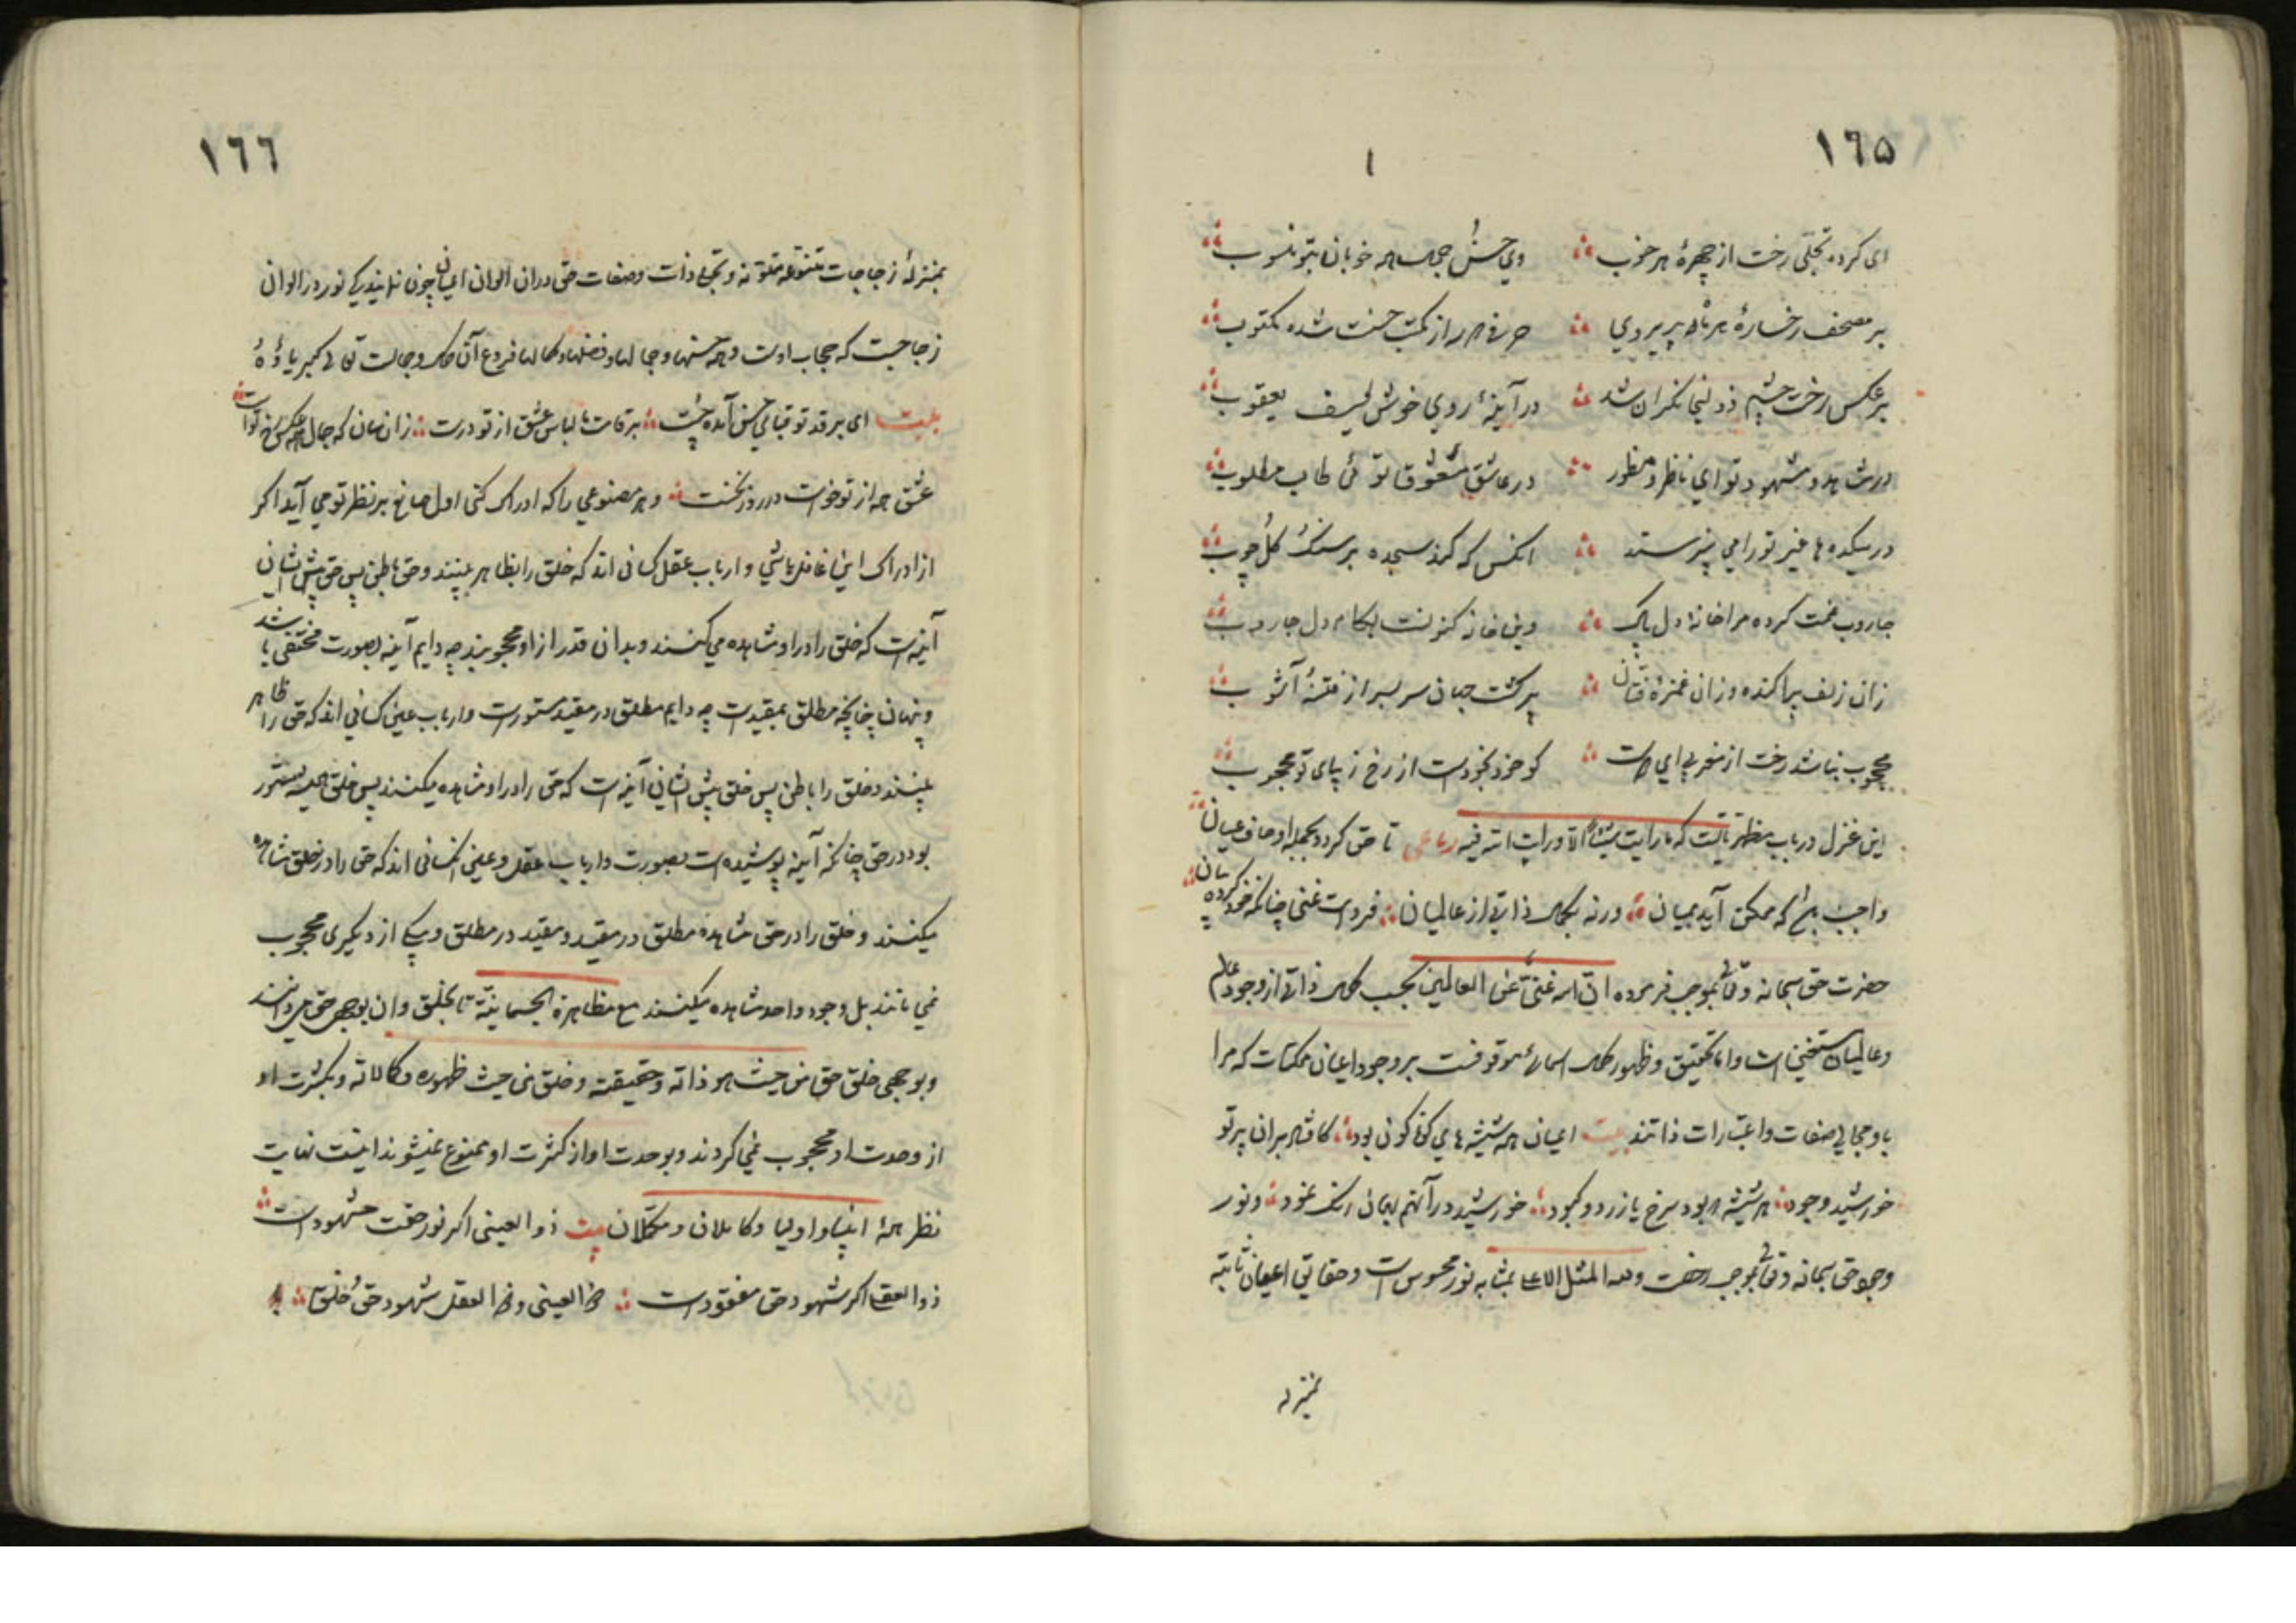 ١٦٥
ای کرده تجلی رخت از چهرهٔ هر خوب وی حسن جمال همه خوبان بتو منسوب
بر مصحف رخسارهٔ هر ماه پریروی حرفی دو سه از کتب حسنت شده مکتوب
بر عکس رخت چشم زلیخا نگران شد در آینهٔ روی خوش یوسف یعقوب
در شاهد و مشهود توای ناظر و منظور در عاشق و معشوق توئی طالب مطلوب
در بتکده ها غیر تورا می نپرستد انکس که کند سجده بر سنک و کل و چوب
جاروب غمت کرده مرا خانهٔ دل پاک وین خانه کنونست بکام دل جاروب
زان زلف پراکنده و زان غمزهٔ فتان پر کشت جهان سر بسر از فتنهٔ آشوب
محجوب نباشد رخت از مغربی ای دوست کو خود بخودست از رخ زیبای تو محجوب
این غزل در باب مظهریاتست که ما رایت شیئا الا ورایت الله فیه رباعی تا حق کردد بجمله اوصاف عیان
واجب باشد که ممکن آید بمیان ورنه بکمال ذاتی از عالمیان فردست غنی چنانکه خود کرده بیان
حضرت حق سبحانه و تعالی بموجب فرموده ان الله غنی عن العالمین بحسب کمال ذاتی از وجود عالم
وعالمیان مستغنی است واما تحقیق وظهور کمال اسمائی موقوفست بر وجود اعیان ممکنات که مرا
یا ومجالی صفات واعتبارات ذاتند بیت اعیان همه شیشه های کوناکون بود کافتاد بران پرتو
خورشید وجود هر شیشه که بود سرخ یا زرد و کبود خورشید در آن هم بهمان رنک نمود ونور
وجود حق سبحانه وتعالی بموجب رخصت ولله المثل الاعلی بمثابه نور محسوس است وحقائق اعیان ثابته
بمنزله
١٦٦
بمنزلهٔ زجاجات متنوعه متلونه وتجلی ذات وصفات حق دران الوان اعیان چون نمایندکی نور در الوان
زجاجیست که حجاب اوست وهمه حسنها وجمالها وفضلها وکمالها فروع آن کمال وجمالست تعالی کبریاؤه
بیت ای بر قد تو قبای حسن آمده چست بر قامت ما لباس عشق از تو درست زان سان که جمال همه عکس رخ تو است
عشق همه از تو خواست در روز نخست وهر مصنوعی را که ادراک کنی اول صانع بر نظر تو می آید اکر
از ادراک این غافل باشی وارباب عقل کسانی اند که خلق را بظاهر بینند وحق باطن پس حق پیش ایشان
آینه است که خلق را در او مشاهده می کنند وبدان قدر از او محجوبند چه دایم آینه بصورت مختفی باشد
وپنهان چنانچه مطلق بمقیدست چه دایم مطلق در مقید مستورست وارباب عین کسانی اند که حق را ظاهر
بینند وخلق را باطن پس خلق پیش ایشان آینه است که حق را در او مشاهده میکنند پس خلق همیشه مستور
بود در حق چنانکه آینه پوشیده است بصورت وارباب عقل وعین کسانی اند که حق را در خلق مشاهده
میکنند وخلق را در حق مشاهده مطلق در مقید ومقید در مطلق ویکی از دیکری محجوب
نمی مانند بل وجود واحد مشاهده میکنند مع مظاهره الجسمانیة تا بخلق وان بوجهی حق می دانند
وبوجهی خلق حق من حیث هو ذاته وحقیقته وخلق من حیث ظهوره وکمالاته وبکثرت او
از وحدت او محجوب نمی کردند وبوحدت او از کثرت او ممنوع نمیشوند اینست نهایت
نظر همهٔ انبیا واولیا وکاملان ومکملان بیت ذو العینی اکر نور حقت مشهودست
ذو العقلی اکر شهود حق مفقودست ذو العینی وذو العقل شهود حق وخلق